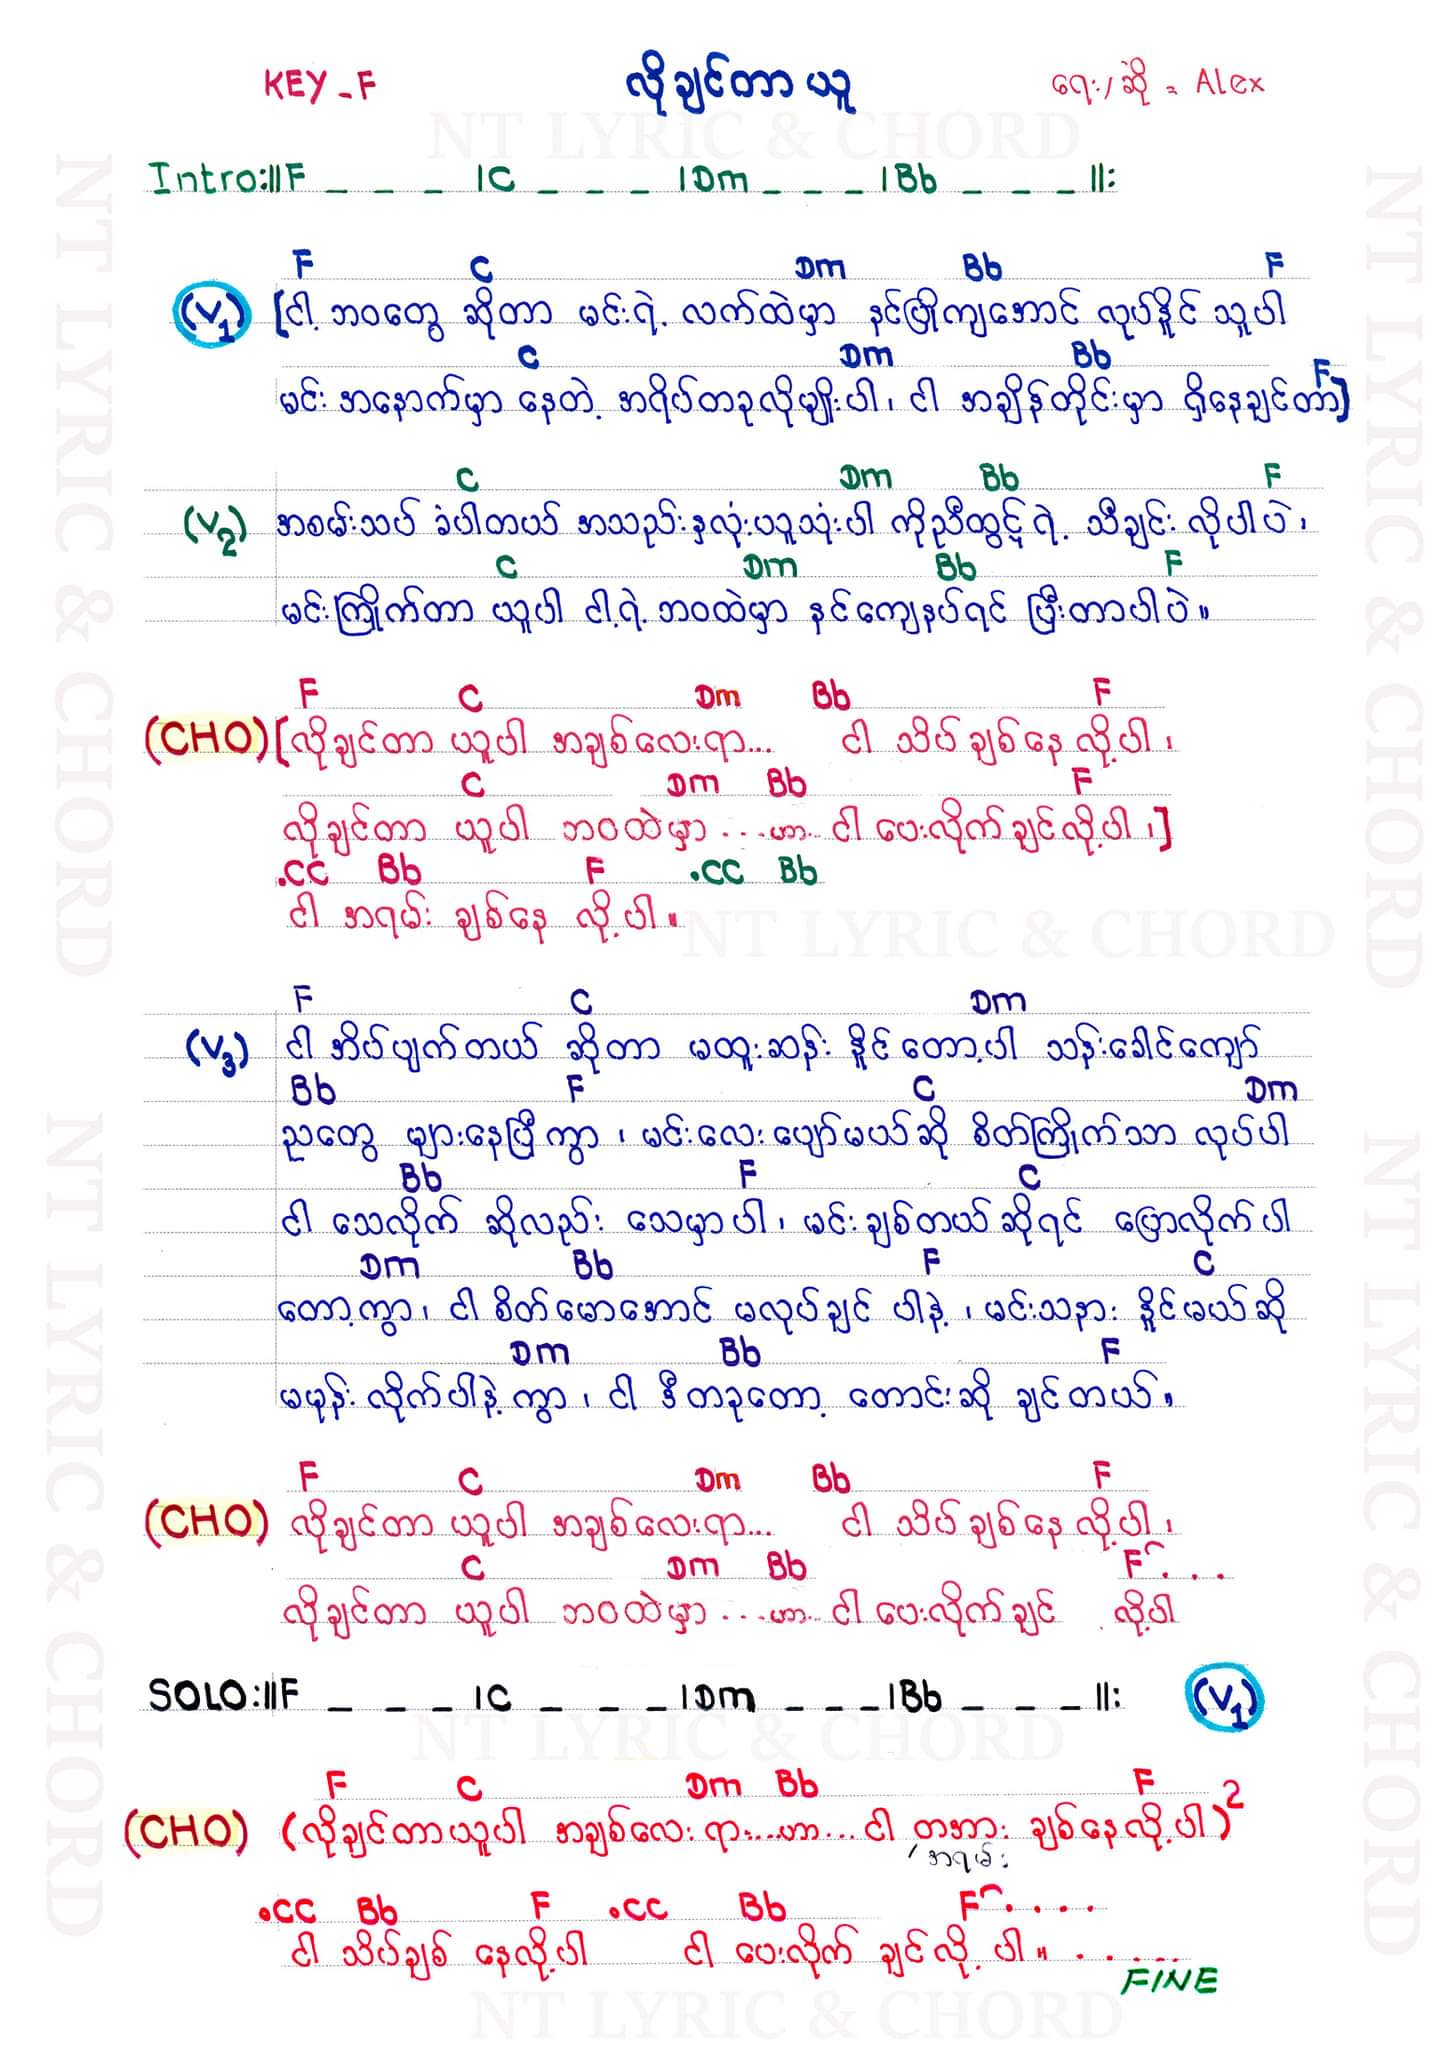 KEY - F လိုချင်တာ ယူ ရေး/ဆို = Alex
NT LYRIC & CHORD
Intro:||F _ _ _ |C _ _ _ |Dm _ _ _ |Bb _ _ _ ||:
F C Dm Bb F
(V1) [ငါ့ ဘဝတွေ ဆိုတာ မင်းရဲ့ လက်ထဲမှာ နင်ဖြိုကျအောင် လုပ်နိုင် သူပါ
C Dm Bb F
မင်း အနောက်မှာ နေတဲ့ အရိပ်တခုလိုမျိုးပါ၊ ငါ အချိန်တိုင်းမှာ ရှိနေချင်တာ]
C Dm Bb F
(V2) အစမ်းသပ် ခံပါတယ် အသည်းနှလုံးယူသုံးပါ ကိုညီထွဋ်ရဲ့ သီချင်း လိုပါပဲ၊
C Dm Bb F
မင်းကြိုက်တာ ယူပါ ငါ့ရဲ့ ဘဝထဲမှာ နင်ကျေနပ်ရင် ပြီးတာပါပဲ။
F C Dm Bb F
(CHO) [လိုချင်တာ ယူပါ အချစ်လေးရာ... ငါ သိပ်ချစ်နေ လို့ပါ၊
C Dm Bb F
လိုချင်တာ ယူပါ ဘဝထဲမှာ ...ဟာ.. ငါ ပေးလိုက်ချင်လို့ပါ၊]
.CC Bb F .CC Bb
ငါ အရမ်း ချစ်နေ လို့ပါ။
NT LYRIC & CHORD
F C Dm
(V3) ငါ အိပ်ပျက်တယ် ဆိုတာ မထူးဆန်း နိုင်တော့ပါ သန်းခေါင်ကျော်
Bb F C Dm
ညတွေ များနေပြီကွာ၊ မင်းလေးပျော်မယ်ဆို စိတ်ကြိုက်သာ လုပ်ပါ
Bb F C
ငါ သေလိုက် ဆိုလည်း သေမှာပါ၊ မင်းချစ်တယ်ဆိုရင် ပြောလိုက်ပါ
Dm Bb F C
တော့ကွာ၊ ငါ စိတ်မောအောင် မလုပ်ချင် ပါနဲ့၊ မင်းသနား နိုင်မယ်ဆို
Dm Bb F
မမုန်းလိုက်ပါနဲ့ ကွာ၊ ငါ ဒီတခုတော့ တောင်းဆို ချင်တယ်။
F C Dm Bb F
(CHO) လိုချင်တာ ယူပါ အချစ်လေးရာ... ငါ သိပ်ချစ်နေ လို့ပါ၊
C Dm Bb F. . .
လိုချင်တာ ယူပါ ဘဝထဲမှာ ...ဟာ.. ငါ ပေးလိုက်ချင် လို့ပါ
SOLO:||F _ _ _ |C _ _ _ |Dm _ _ _ |Bb _ _ _ ||: (V1)
NT LYRIC & CHORD
F C Dm Bb F
(CHO) (လိုချင်တာယူပါ အချစ်လေးရာ...ဟာ... ငါ တအား ချစ်နေလို့ပါ)²
/အရမ်း
.CC Bb F .CC Bb F. . . .
ငါ သိပ်ချစ် နေလို့ပါ ငါ ပေးလိုက် ချင်လို့ ပါ။ . . . . .
FINE
NT LYRIC & CHORD
NT LYRIC & CHORD
NT LYRIC & CHORD
NT LYRIC & CHORD
NT LYRIC & CHORD